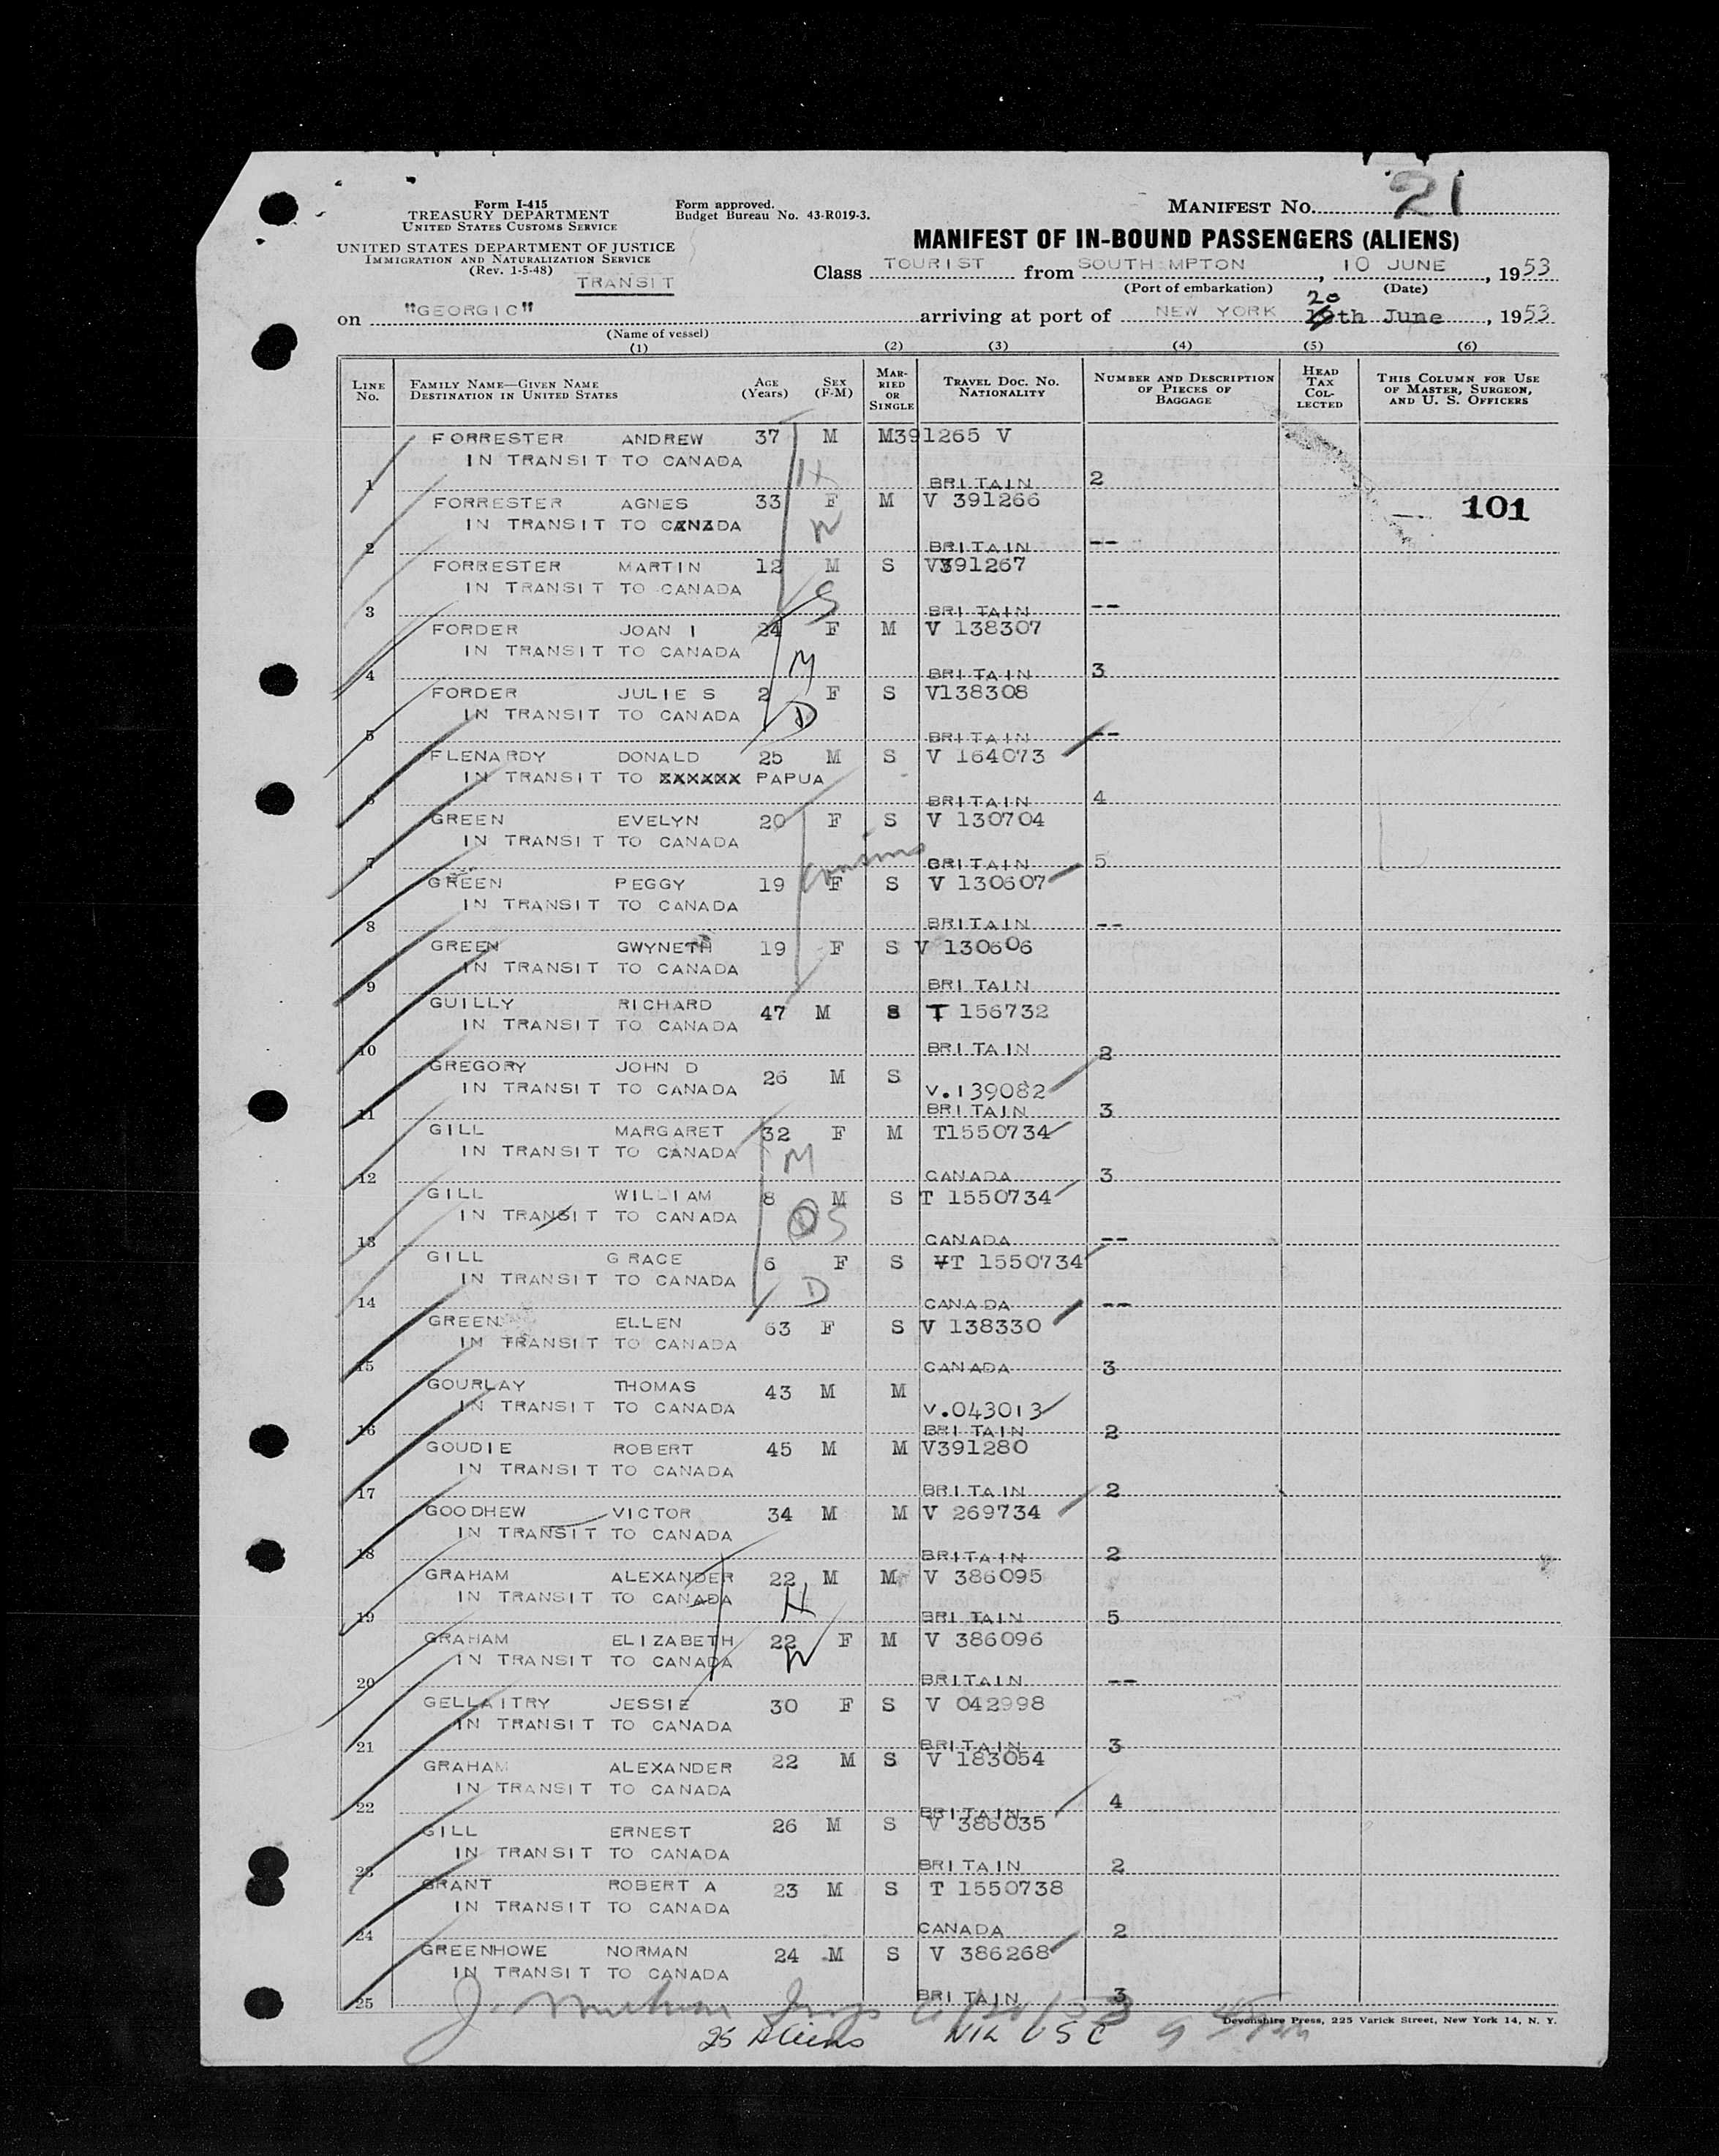 Form I-415
TREASURY DEPARTMENT
UNITED STATES CUSTOMS SERVICE
UNITED STATES DEPARTMENT OF JUSTICE
IMMIGRATION AND NATURALIZATION SERVICE
(Rev. 1-5-48)
TRANSIT
Form approved.
Budget Bureau No. 43-R019-3.
MANIFEST NO. 21
MANIFEST OF IN-BOUND PASSENGERS (ALIENS)
Class TOURIST from SOUTH MPTON, 10 JUNE, 1953
(Port of embarkation) (Date)
on "GEORGIC" arriving at port of NEW YORK 20 th June, 1953
(Name of vessel)
(1) (2) (3) (4) (5) (6)
LINE No. FAMILY NAME—GIVEN NAME DESTINATION IN UNITED STATES AGE (Years) SEX (F-M) MARRIED OR SINGLE TRAVEL DOC. NO. NATIONALITY NUMBER AND DESCRIPTION OF PIECES OF BAGGAGE HEAD TAX COLLECTED THIS COLUMN FOR USE OF MASTER, SURGEON, AND U. S. OFFICERS
FORRESTER ANDREW 37 M M391265 V
IN TRANSIT TO CANADA H
1 BRITAIN 2
FORRESTER AGNES 33 F M V 391266 — 101
IN TRANSIT TO CANADA W
2 BRITAIN --
FORRESTER MARTIN 12 M S V391267
IN TRANSIT TO CANADA S
3 BRITAIN --
FORDER JOAN I 24 F M V 138307
IN TRANSIT TO CANADA M
4 BRITAIN 3
FORDER JULIE S 2 F S V138308
IN TRANSIT TO CANADA D
5 BRITAIN --
FLENARDY DONALD 25 M S V 164073
IN TRANSIT TO XXXXXX PAPUA
6 BRITAIN 4
GREEN EVELYN 20 F S V 130704
IN TRANSIT TO CANADA cousins
7 BRITAIN 5
GREEN PEGGY 19 F S V 130607
IN TRANSIT TO CANADA
8 BRITAIN --
GREEN GWYNETH 19 F S V 130606
IN TRANSIT TO CANADA
9 BRITAIN
GUILLY RICHARD 47 M S T 156732
IN TRANSIT TO CANADA
10 BRITAIN 2
GREGORY JOHN D 26 M S
IN TRANSIT TO CANADA V.139082
11 BRITAIN 3
GILL MARGARET 32 F M T1550734
IN TRANSIT TO CANADA M
12 CANADA 3
GILL WILLIAM 8 M S T 1550734
IN TRANSIT TO CANADA S
13 CANADA --
GILL GRACE 6 F S VT 1550734
IN TRANSIT TO CANADA D
14 CANADA --
GREEN ELLEN 63 F S V 138330
IN TRANSIT TO CANADA
15 CANADA 3
GOURLAY THOMAS 43 M M
IN TRANSIT TO CANADA V.043013
16 BRITAIN 2
GOUDIE ROBERT 45 M M V391280
IN TRANSIT TO CANADA
17 BRITAIN 2
GOODHEW VICTOR 34 M M V 269734
IN TRANSIT TO CANADA
18 BRITAIN 2
GRAHAM ALEXANDER 22 M M V 386095
IN TRANSIT TO CANADA H
19 BRITAIN 5
GRAHAM ELIZABETH 22 F M V 386096
IN TRANSIT TO CANADA W
20 BRITAIN --
GELLAITRY JESSIE 30 F S V 042998
IN TRANSIT TO CANADA
21 BRITAIN 3
GRAHAM ALEXANDER 22 M S V 183054
IN TRANSIT TO CANADA
22 BRITAIN 4
GILL ERNEST 26 M S V 386035
IN TRANSIT TO CANADA
23 BRITAIN 2
GRANT ROBERT A 23 M S T 1550738
IN TRANSIT TO CANADA
24 CANADA 2
GREENHOWE NORMAN 24 M S V 386268
IN TRANSIT TO CANADA
25 BRITAIN 3
6/20/53
Devonshire Press, 225 Varick Street, New York 14, N. Y.
25 Aliens NIL USC